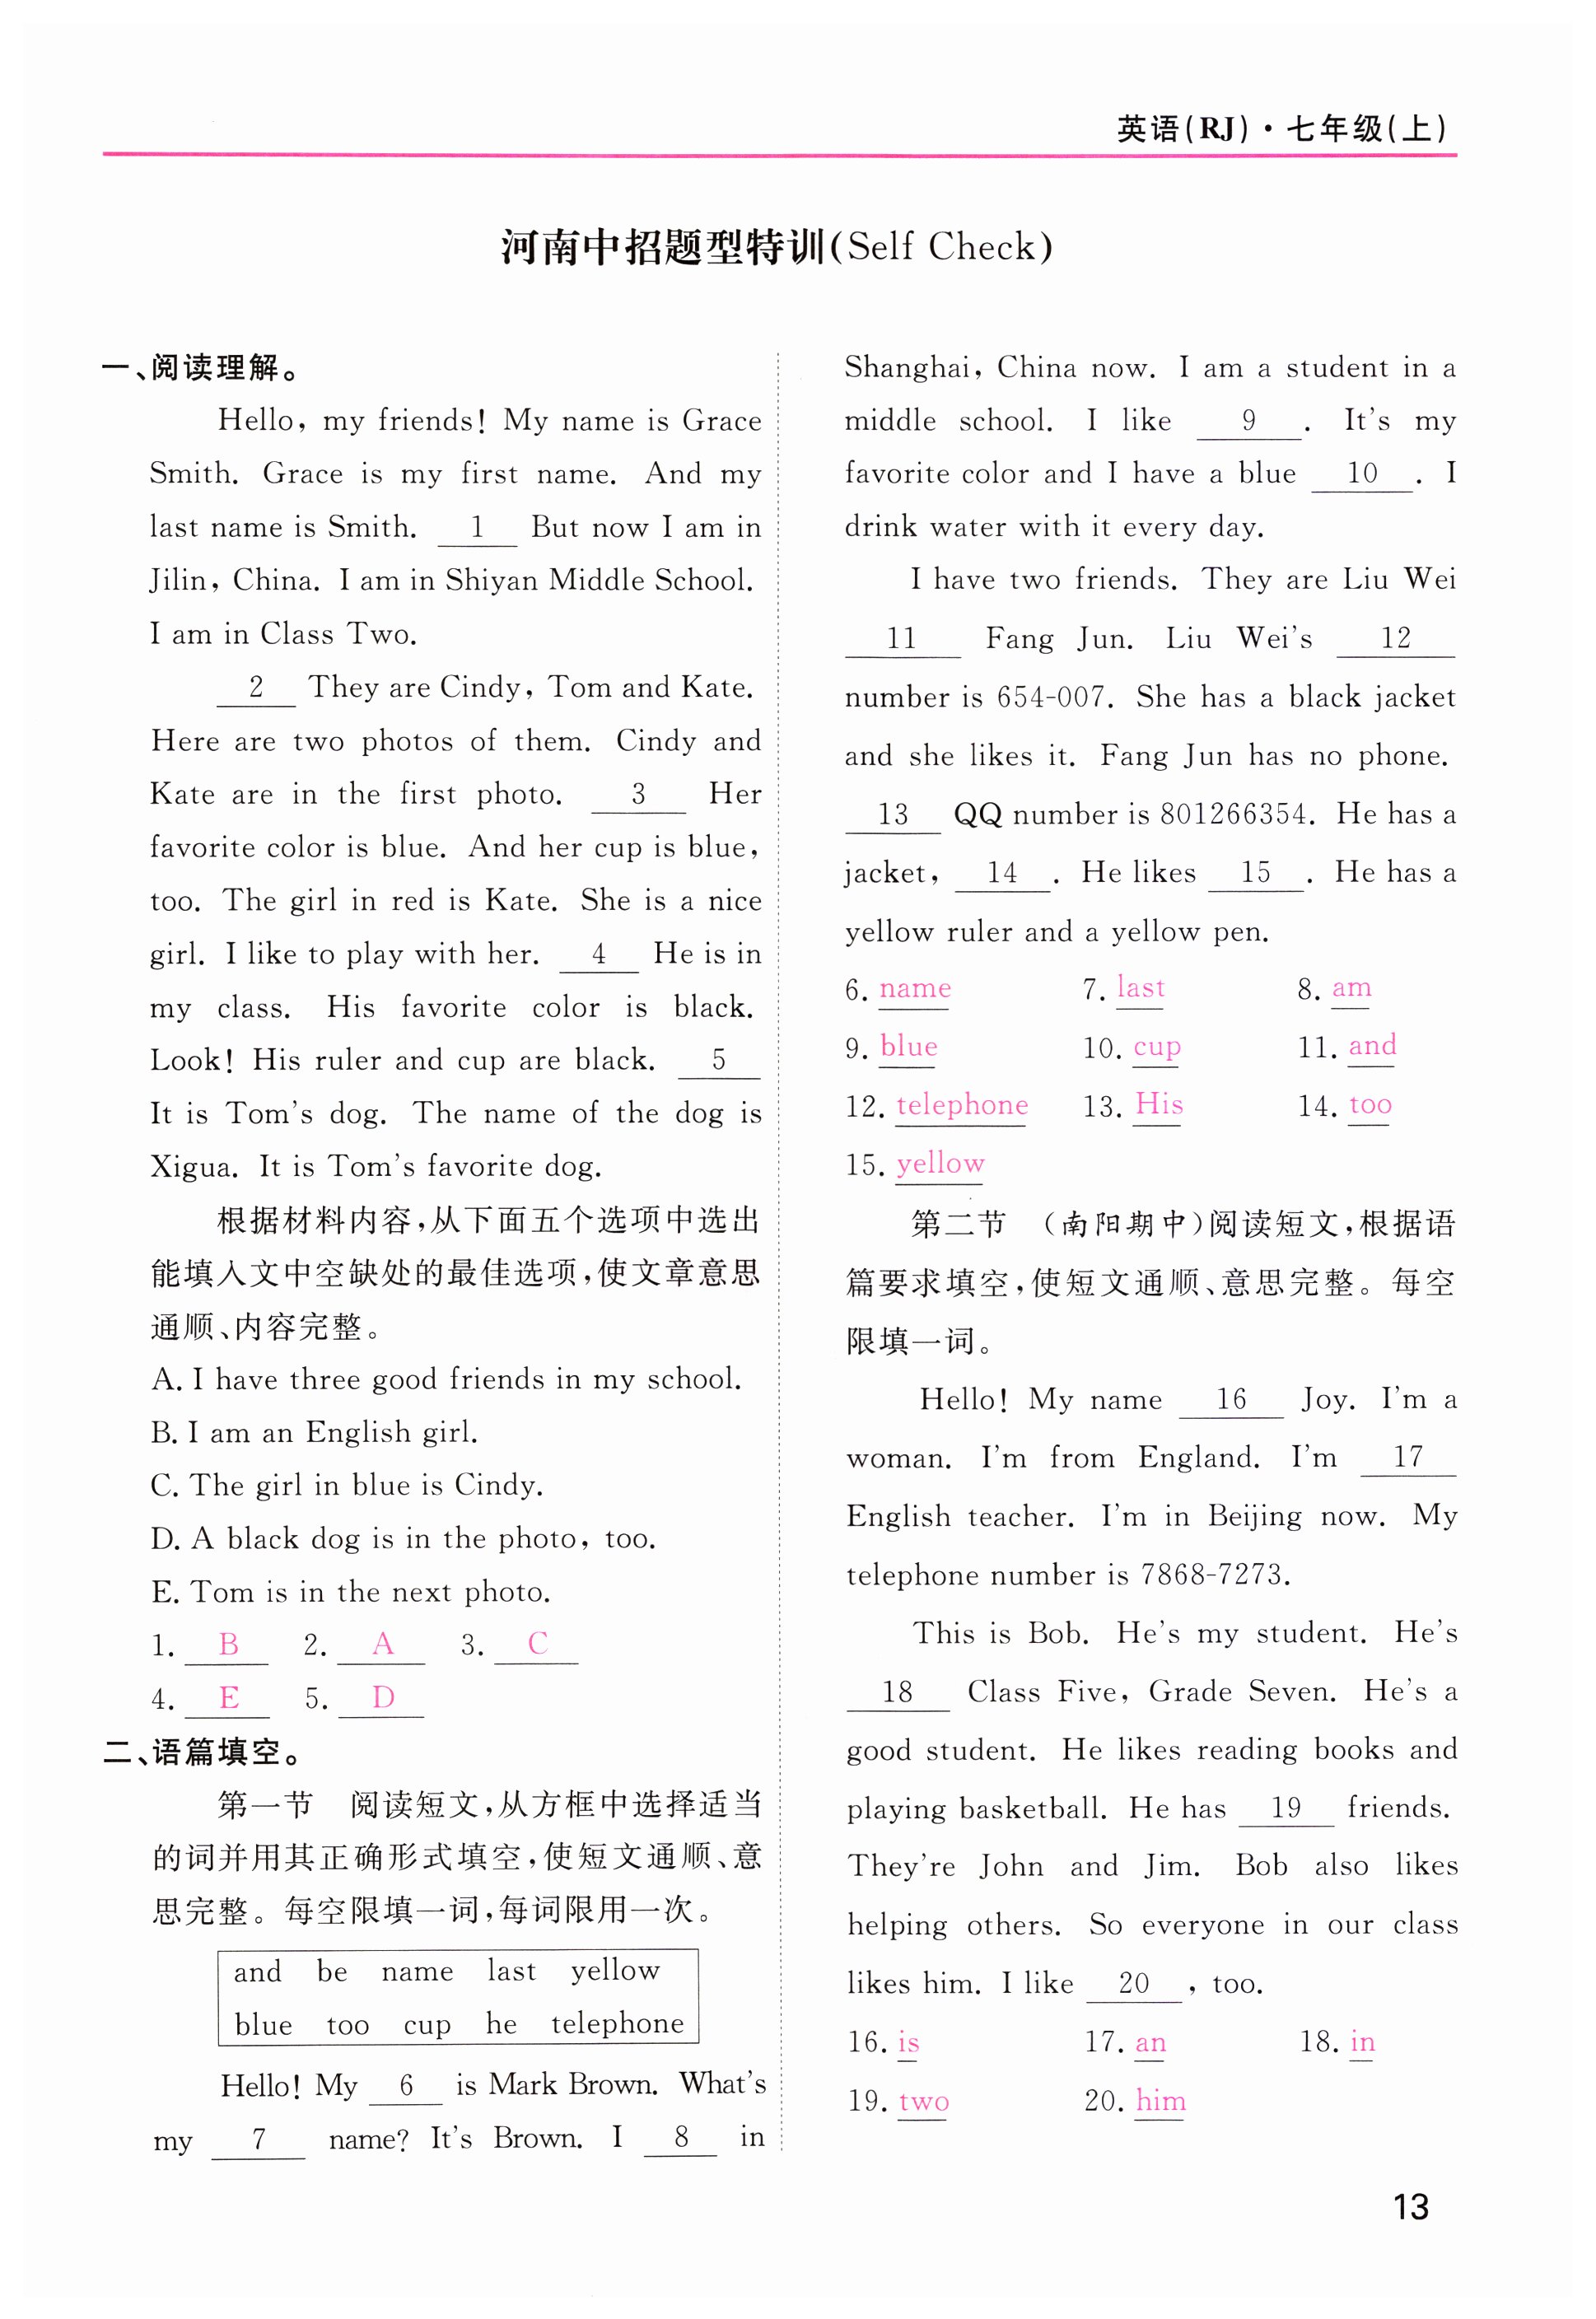 英语(RJ)·七年级(上)
河南中招题型特训(Self Check)
一、阅读理解。
Hello, my friends! My name is Grace
Smith. Grace is my first name. And my
last name is Smith. 1 But now I am in
Jilin, China. I am in Shiyan Middle School.
I am in Class Two.
2 They are Cindy, Tom and Kate.
Here are two photos of them. Cindy and
Kate are in the first photo. 3 Her
favorite color is blue. And her cup is blue,
too. The girl in red is Kate. She is a nice
girl. I like to play with her. 4 He is in
my class. His favorite color is black.
Look! His ruler and cup are black. 5
It is Tom's dog. The name of the dog is
Xigua. It is Tom's favorite dog.
根据材料内容,从下面五个选项中选出
能填入文中空缺处的最佳选项,使文章意思
通顺、内容完整。
A. I have three good friends in my school.
B. I am an English girl.
C. The girl in blue is Cindy.
D. A black dog is in the photo, too.
E. Tom is in the next photo.
1. B 2. A 3. C
4. E 5. D
二、语篇填空。
第一节 阅读短文,从方框中选择适当
的词并用其正确形式填空,使短文通顺、意
思完整。每空限填一词,每词限用一次。
and be name last yellow
blue too cup he telephone
Hello! My 6 is Mark Brown. What's
my 7 name? It's Brown. I 8 in
Shanghai, China now. I am a student in a
middle school. I like 9 . It's my
favorite color and I have a blue 10 . I
drink water with it every day.
I have two friends. They are Liu Wei
11 Fang Jun. Liu Wei's 12
number is 654-007. She has a black jacket
and she likes it. Fang Jun has no phone.
13 QQ number is 801266354. He has a
jacket, 14 . He likes 15 . He has a
yellow ruler and a yellow pen.
6. name 7. last 8. am
9. blue 10. cup 11. and
12. telephone 13. His 14. too
15. yellow
第二节 (南阳期中)阅读短文,根据语
篇要求填空,使短文通顺、意思完整。每空
限填一词。
Hello! My name 16 Joy. I'm a
woman. I'm from England. I'm 17
English teacher. I'm in Beijing now. My
telephone number is 7868-7273.
This is Bob. He's my student. He's
18 Class Five, Grade Seven. He's a
good student. He likes reading books and
playing basketball. He has 19 friends.
They're John and Jim. Bob also likes
helping others. So everyone in our class
likes him. I like 20 , too.
16. is 17. an 18. in
19. two 20. him
13